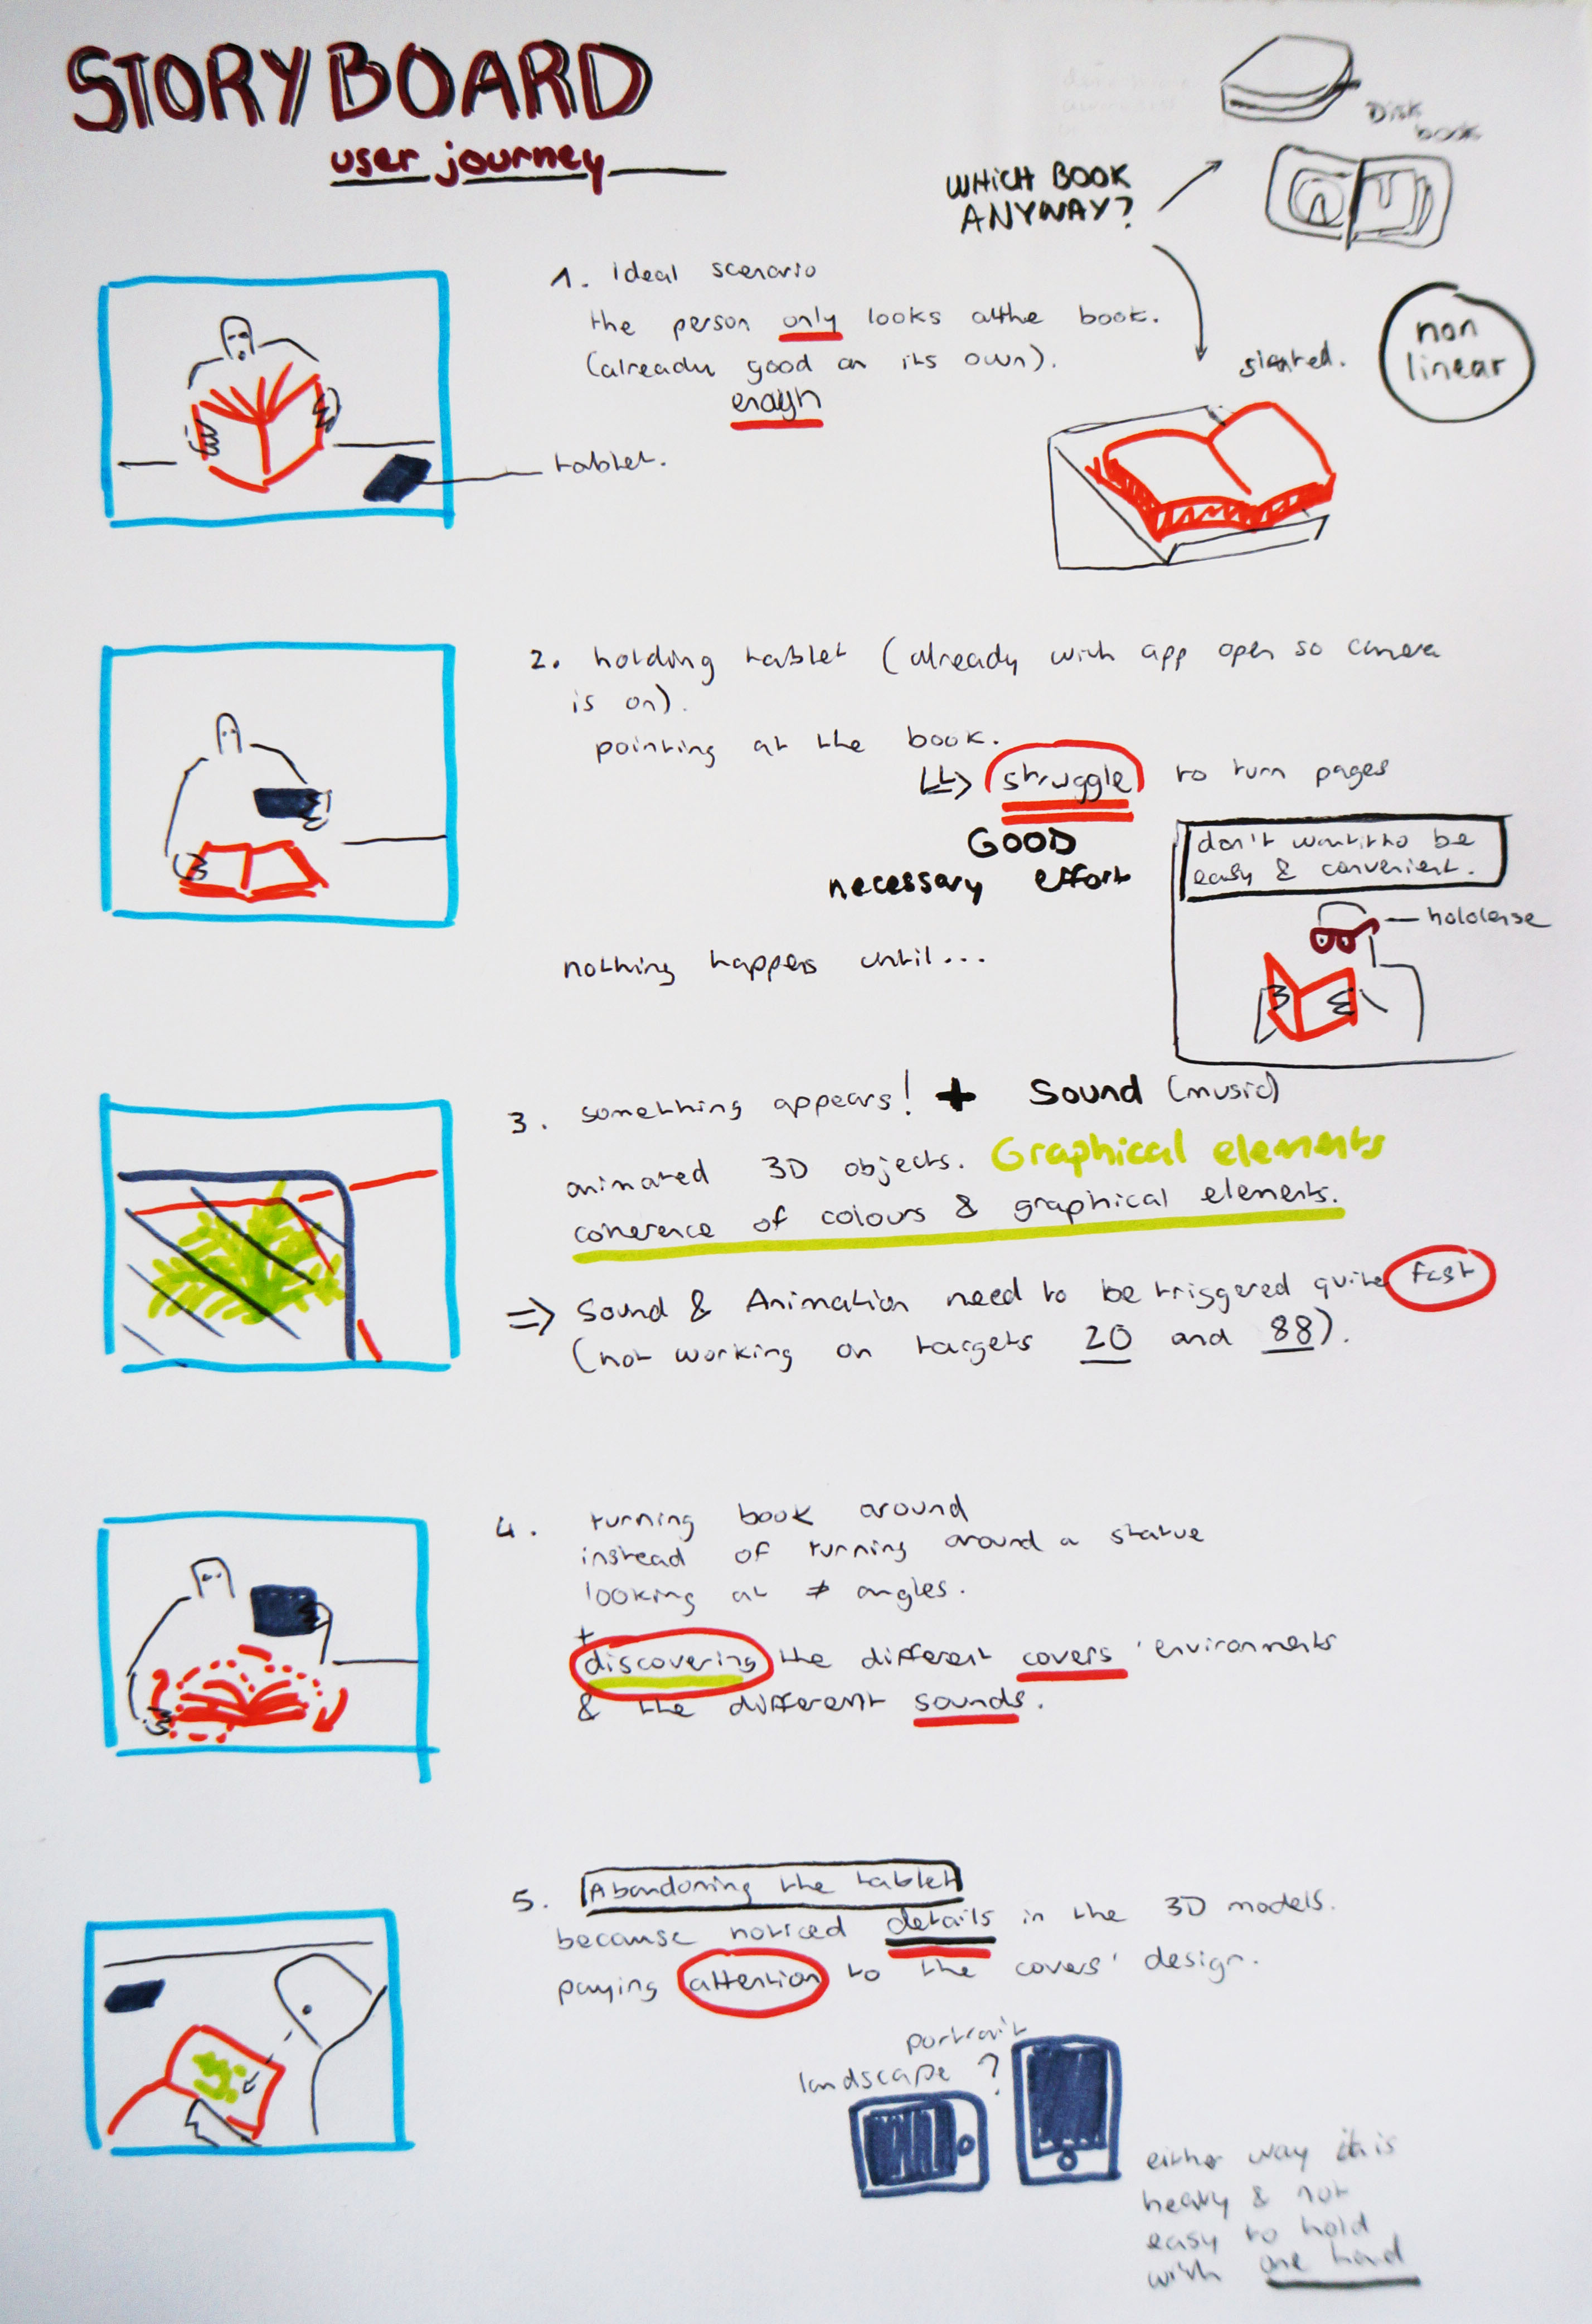 STORYBOARD
user journey
WHICH BOOK
ANYWAY?
Disk
book
1. Ideal scenario
the person only looks at the book.
(already good on its own).
enough
tablet.
slanted.
non
linear
2. holding tablet (already with app open so camera
is on).
pointing at the book.
struggle to turn pages
GOOD
necessary effort
don't want it to be
easy & convenient.
hololense
nothing happens until...
3. something appears! + Sound (music)
animated 3D objects. Graphical elements
coherence of colours & graphical elements.
=> Sound & Animation need to be triggered quite fast
(not working on targets 20 and 88).
4. turning book around
instead of turning around a statue
looking at ≠ angles.
+
discovering the different covers' environments
& the different sounds.
5. Abandoning the tablet
because noticed details in the 3D models.
paying attention to the covers' design.
portrait
landscape ?
either way it is
heavy & not
easy to hold
with one hand